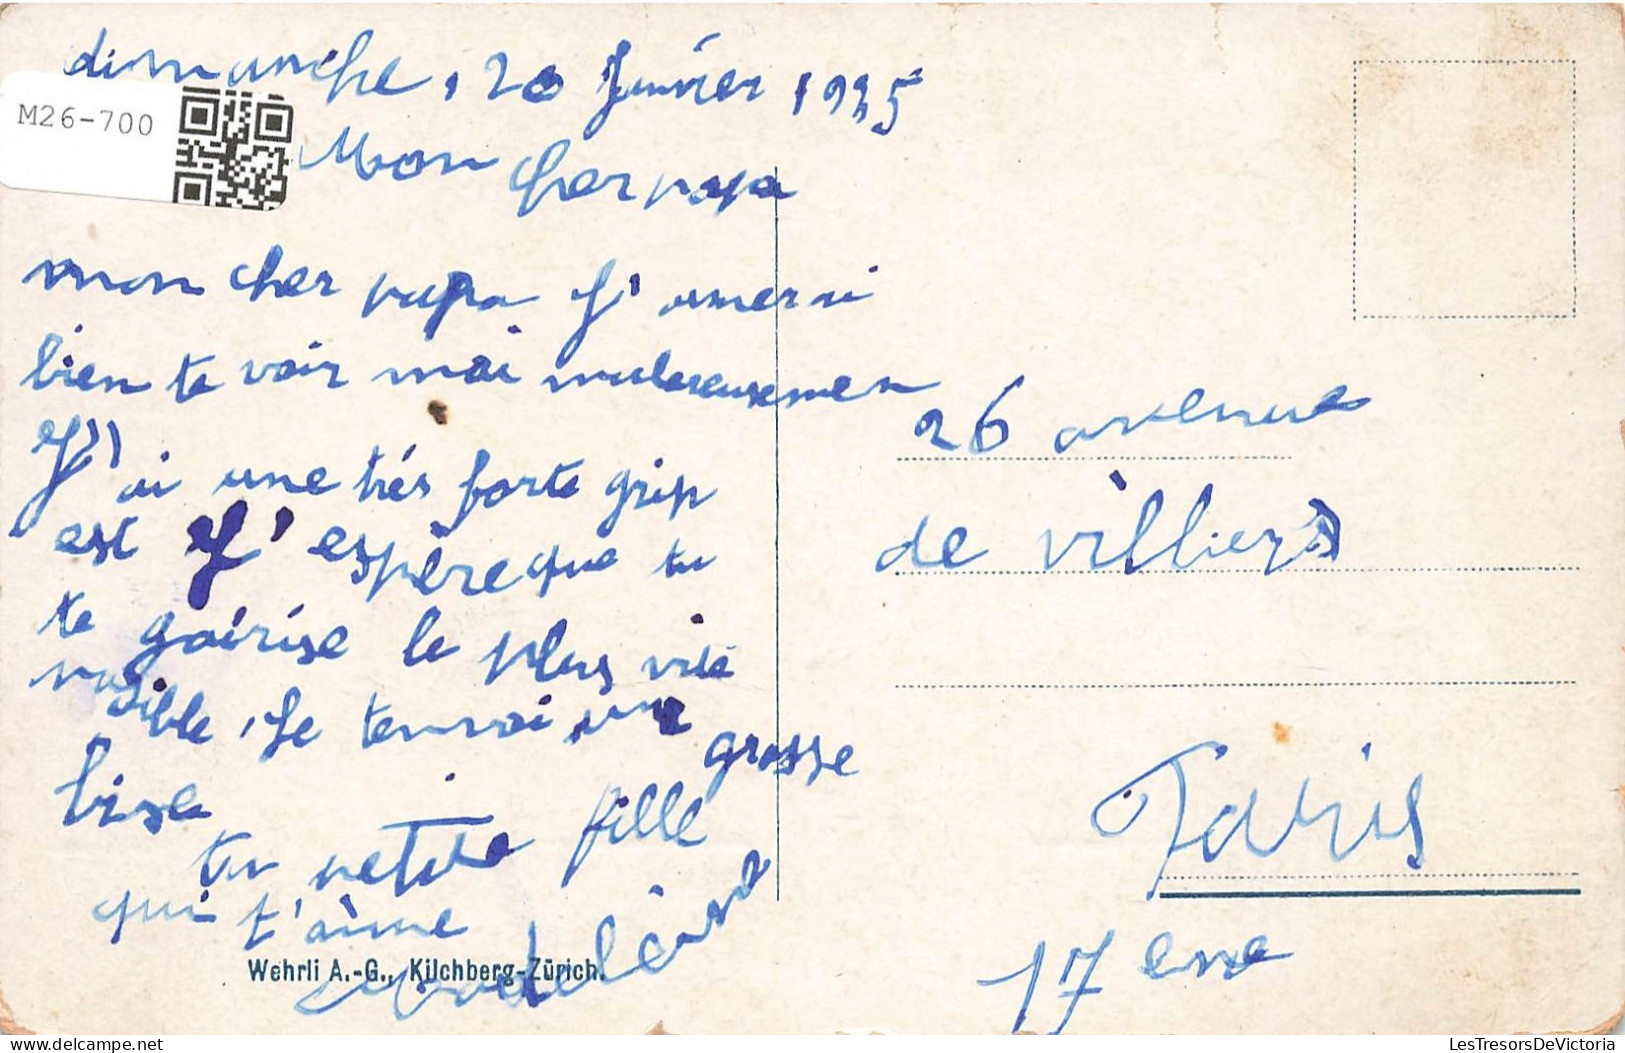 dimanche, 20 Janvier 1935
M26-700
Mon cher papa
mon cher papa J' amerai
bien te voir mai malereusemen
J'ai une trés forte grip
est J' espère que tu
te goirise le plus vite
posible, Je tenvoi une grosse
bise
ta petite fille
qui t'aime
Madeleine
Wehrli A.-G., Kilchberg-Zürich.
26 avenue
de villiers
Paris
17 eme
LesTresorsDeVictoria